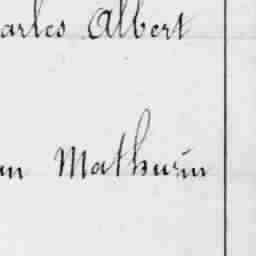 arles Albert
an Mathurin